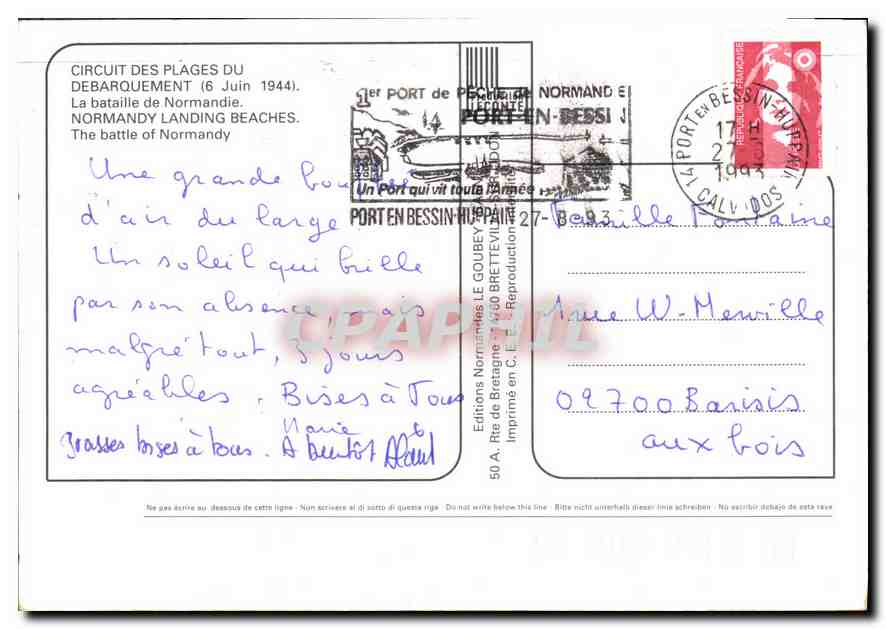 CIRCUIT DES PLAGES DU
DEBARQUEMENT (6 Juin 1944).
La bataille de Normandie.
NORMANDY LANDING BEACHES.
The battle of Normandy
Une grande
d'air du large
Un soleil qui brille
par son absence, mais
malgré tout, 3 jours
agréables. Bises à Tous
Marie
grosses bises à tous. A bientôt
1er PORT de PECHE de NORMANDIE
PORT-EN-BESSIN
Un Port qui vit toute l'Année
PORT EN BESSIN-HUPPAIN 27-8-93
14 PORT EN BESSIN-HUPPAIN
17 H
27
1993
CALVADOS
REPUBLIQUE FRANÇAISE
Editions Normandes LE GOUBEY
50 A. Rte de Bretagne - 14760 BRETTEVILLE S/ODON
Imprimé en C. E. E. - Reproduction interdite
Famille Fontaine
1 rue W. Merville
02700 Barisis
aux bois
CPAPHIL
Ne pas écrire au dessous de cette ligne - Non scrivere al di sotto di questa riga - Do not write below this line - Bitte nicht unterhalb dieser linie schreiben - No escribir debajo de esta raya